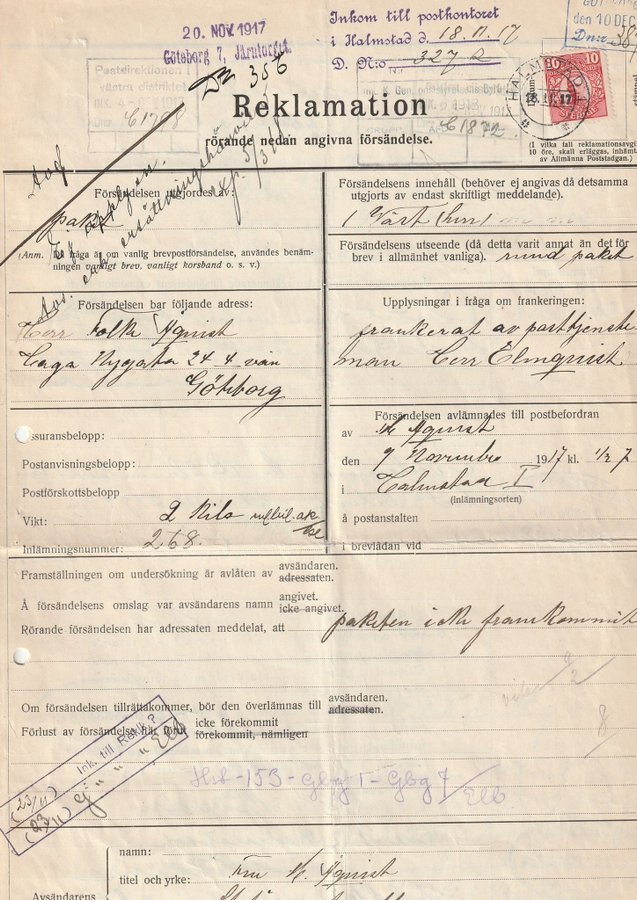 20. NOV. 1917
Göteborg 7, Järntorget.
Inkom till postkontoret
i Halmstad d. 18.11.17
D. N:o 327 2
den 10 DEC
D:nr:
Dr 356
Postdirektionen i
västra distriktet
INK. 4
1917
C 1788
C 1872
HALMSTAD
18.11.17
10 10
SVERIGE
Reklamation
rörande nedan angivna försändelse.
(I vilka fall reklamationsavgift
10 öre, skall erläggas, inhämtas
av Allmänna Poststadgan.)
Försändelsen utgjordes av:
paket
(Anm. I fråga är om vanlig brevpostförsändelse, användes benäm-
ningen vanligt brev, vanligt korsband o. s. v.)
Försändelsens innehåll (behöver ej angivas då detsamma
utgjorts av endast skriftligt meddelande).
Försändelsens utseende (då detta varit annat än det för
brev i allmänhet vanliga). rund paket
Försändelsen bar följande adress:
Herr Folke Aquist
Haga Nygata 24 4 vån
Göteborg
Upplysningar i fråga om frankeringen:
frankerat av posttjenste
man Herr Elmqvist
Assuransbelopp:
Postanvisningsbelopp:
Postförskottsbelopp
Vikt: 2 Kilo
Inlämningsnummer: 268.
Försändelsen avlämnades till postbefordran
av M Aquist
den 9 November 1917 kl. 1/2 7
i Halmstad I
(inlämningsorten)
å postanstalten
i brevlådan vid
Framställningen om undersökning är avlåten av avsändaren.
adressaten.
Å försändelsens omslag var avsändarens namn angivet.
icke angivet.
Rörande försändelsen har adressaten meddelat, att paketen icke framkommit
Om försändelsen tillrättakommer, bör den överlämnas till avsändaren.
adressaten.
Förlust av försändelse har förut icke förekommit
förekommit, nämligen
Ink. till Reklk P
(23/11) G " " " Elb
Hst-153-Gbg 1-Gbg 7
/Elb
8
Avsändarens
namn:
titel och yrke: Fru M. Aquist